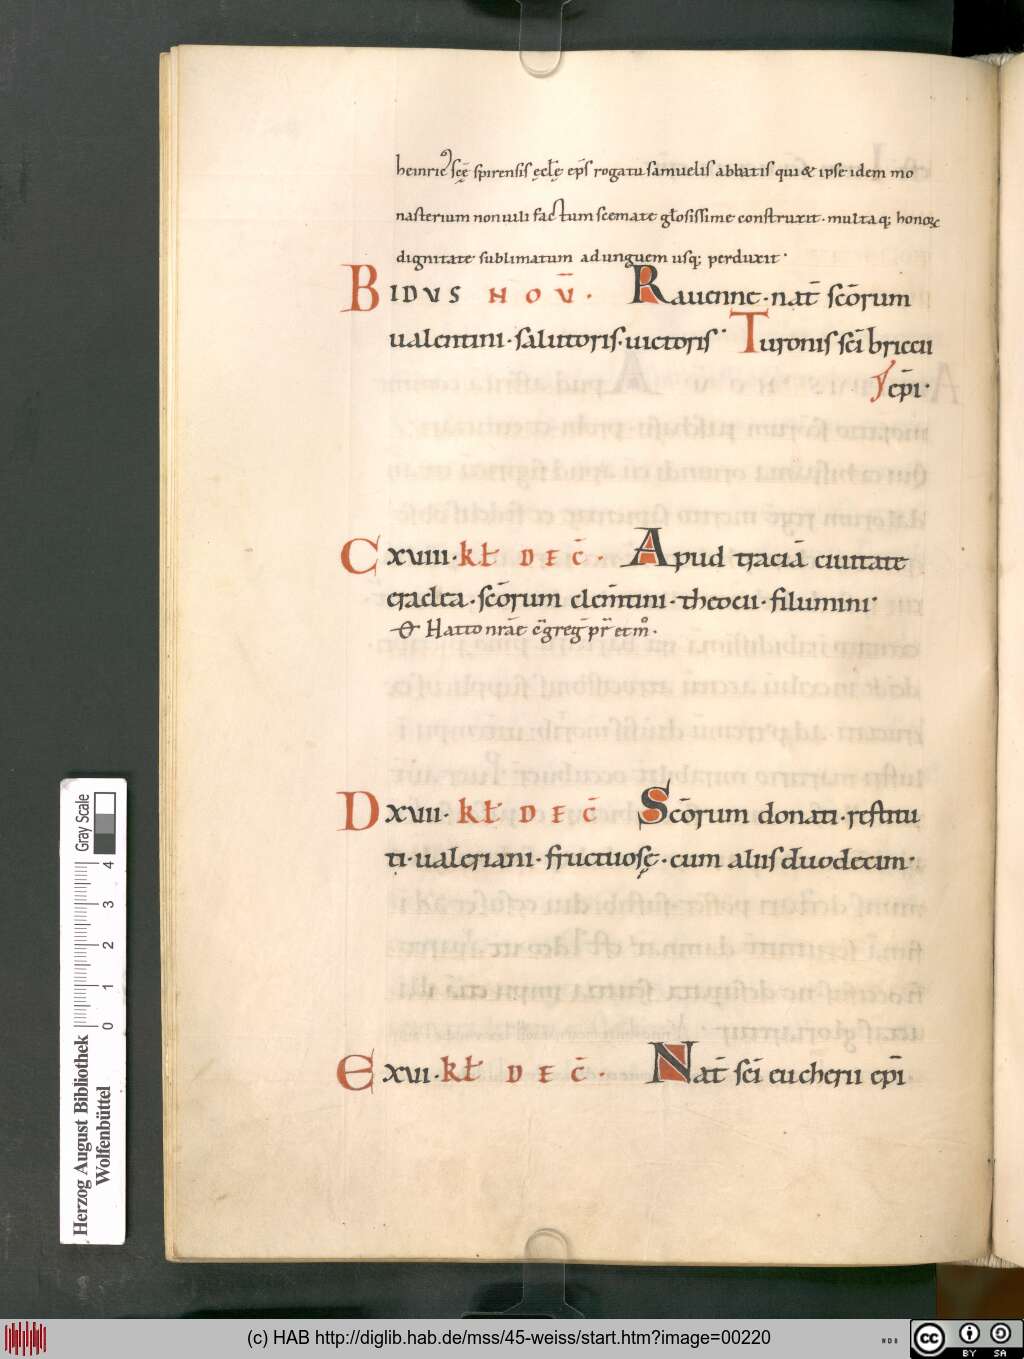 heinric᷒ scę̄ spirensis ęcłę ep̄s rogatu samuelis abbatis qui & ipse idem mo
nasterium non uili factum scemate gl̄osissime construxit. multaq; honoꝝ
dignitate sublimatum ad unguem usq; perduxit.
B IDVS NOV̄. Rauenne. nat̄ scōrum
ualentini. salutoris. uictoris. Turonis sc̄i briccii
ep̄i.
C xviii. kł DEC̄. Apud traciā ciuitate
eraclea. scōrum clem̄tini. theoeii. filumini.
Hatto nr̄ae c̄greg̅ pr̄ et m̊.
D xvii. kł DEC̄ Scōrum donati. restitu
ti. ualeriani. fructuosę. cum aliis duodecim.
E xvi. kł DEC̄. Nat̄ sc̄i eucherii ep̄i
Gray Scale
0 1 2 3 4
Herzog August Bibliothek
Wolfenbüttel
(c) HAB http://diglib.hab.de/mss/45-weiss/start.htm?image=00220
cc BY SA